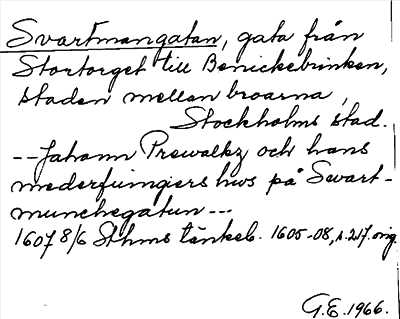 Svartmangatan, gata från
Stortorget till Benickebrinken,
staden mellan broarna,
Stockholms stad.
--Johann Prewalkz och hans
mederfuingiers hws på Swart-
munchegatun---
1607 8/6 Sthms tänkeb. 1605-08, s. 217. orig.
G.E. 1966.